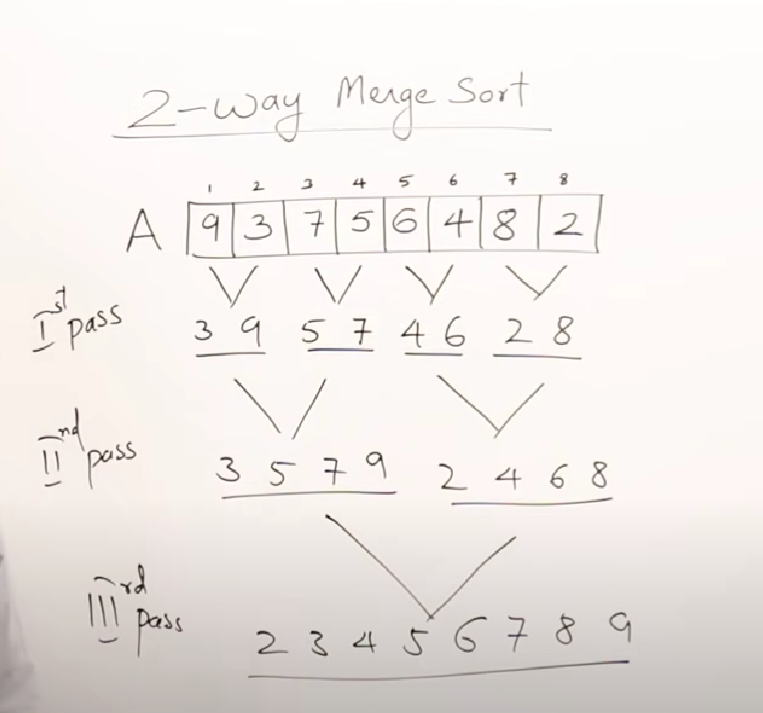 2-way Merge Sort
1 2 3 4 5 6 7 8
A 9 3 7 5 6 4 8 2
Ist pass 3 9 5 7 4 6 2 8
IInd pass 3 5 7 9 2 4 6 8
IIIrd pass 2 3 4 5 6 7 8 9